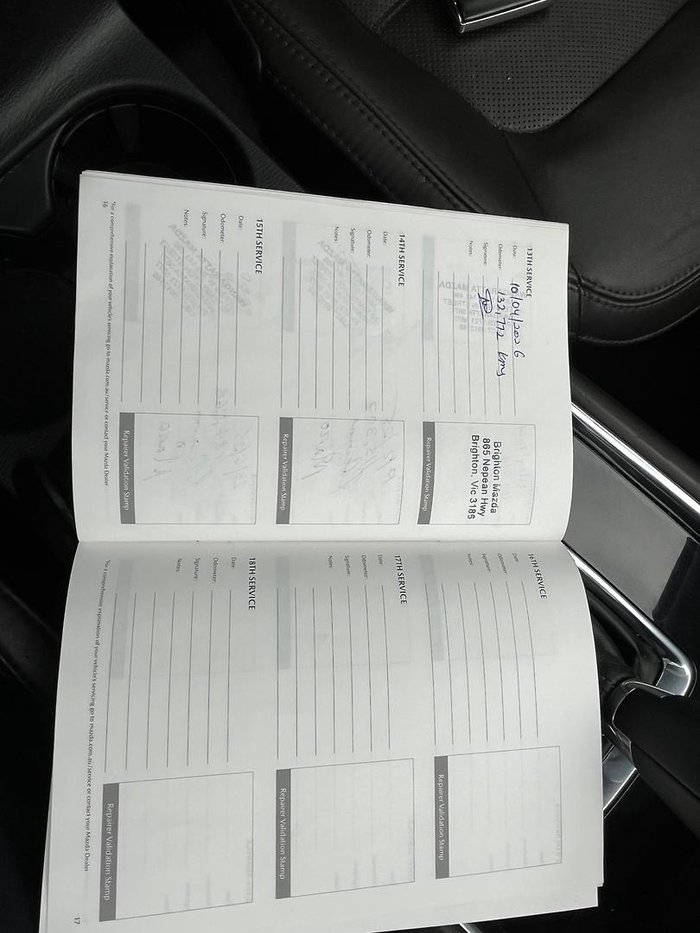 13TH SERVICE
Date: 10/04/2026
Odometer: 132,772 kms
Signature:
Notes:
Brighton Mazda
865 Nepean Hwy
Brighton, Vic 3186
Repairer Validation Stamp
14TH SERVICE
Date:
Odometer:
Signature:
Notes:
Repairer Validation Stamp
15TH SERVICE
Date:
Odometer:
Signature:
Notes:
Repairer Validation Stamp
*For a comprehensive explanation of your vehicle's servicing go to mazda.com.au/service or contact your Mazda Dealer
16
16TH SERVICE
Date:
Odometer:
Signature:
Notes:
Repairer Validation Stamp
17TH SERVICE
Date:
Odometer:
Signature:
Notes:
Repairer Validation Stamp
18TH SERVICE
Date:
Odometer:
Signature:
Notes:
Repairer Validation Stamp
*For a comprehensive explanation of your vehicle's servicing go to mazda.com.au/service or contact your Mazda Dealer
17